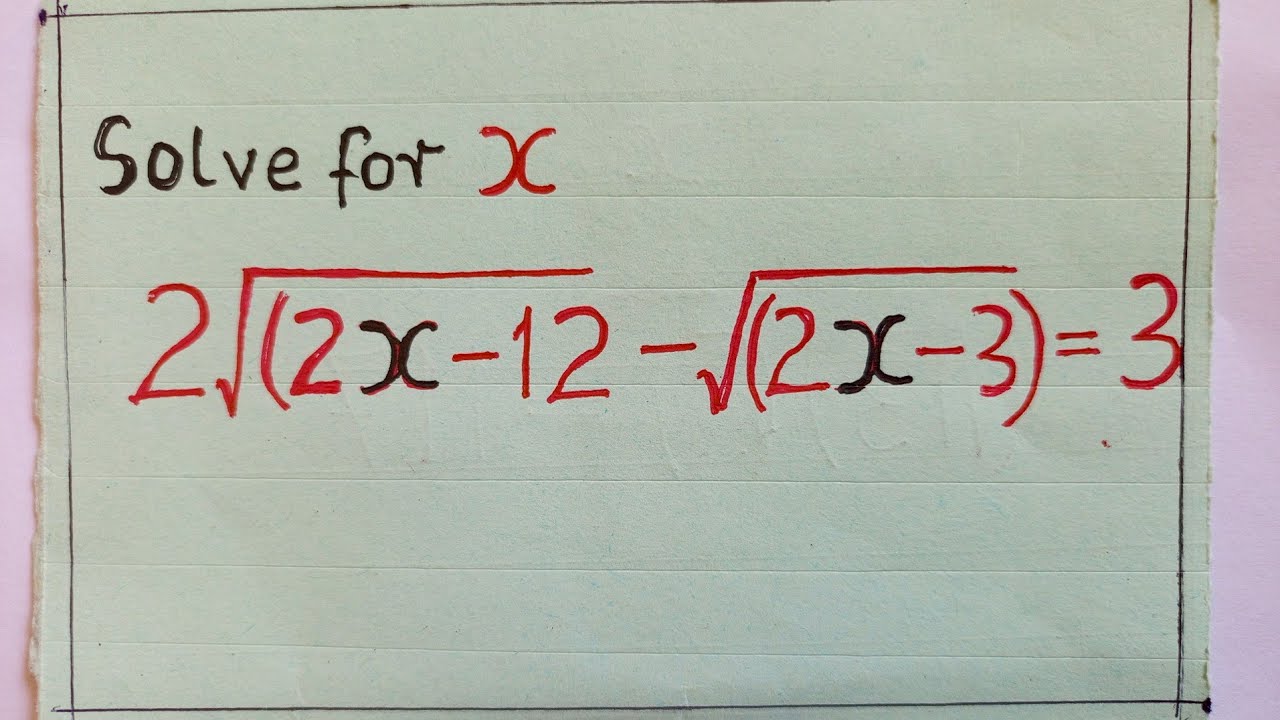 Solve for x
2√(2x-12 - √(2x-3) = 3